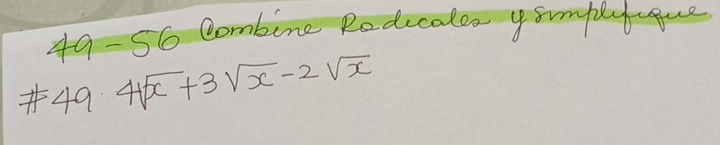 49-56 Combine Radicales y simplifique
#49. 4√x + 3√x - 2√x